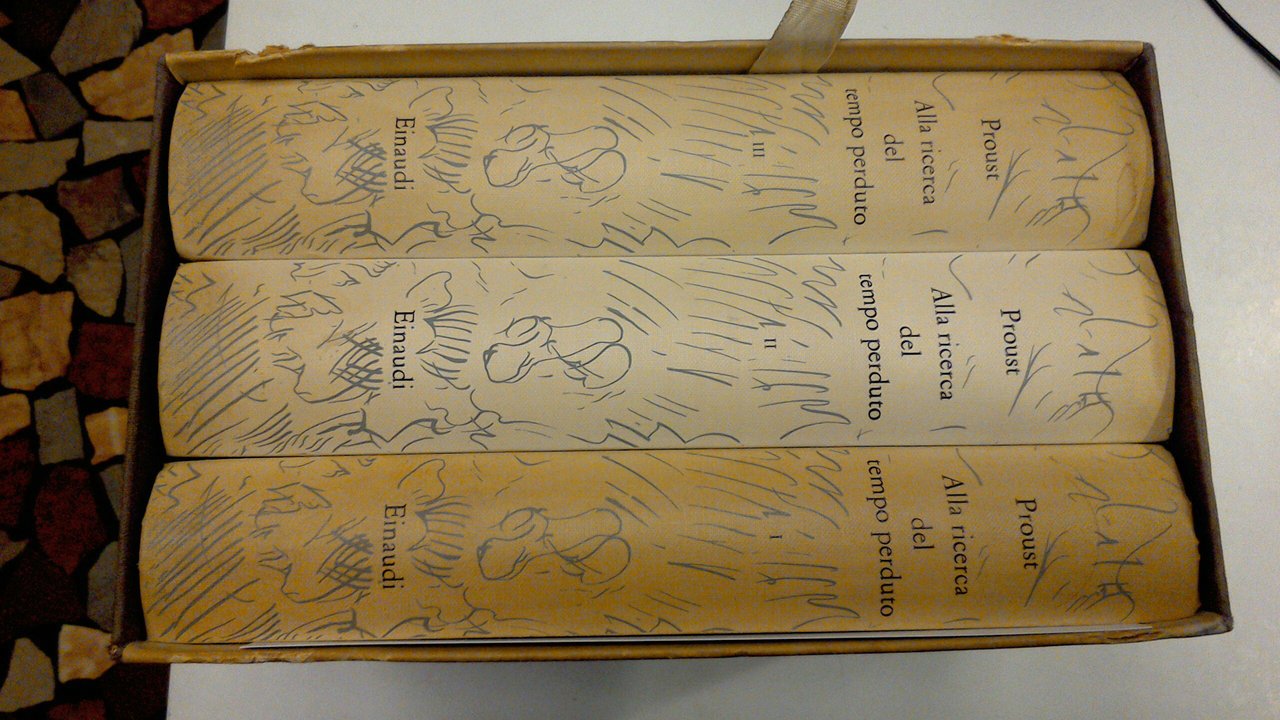 Proust
Alla ricerca
del
tempo perduto
III
Einaudi
Proust
Alla ricerca
del
tempo perduto
II
Einaudi
Proust
Alla ricerca
del
tempo perduto
I
Einaudi